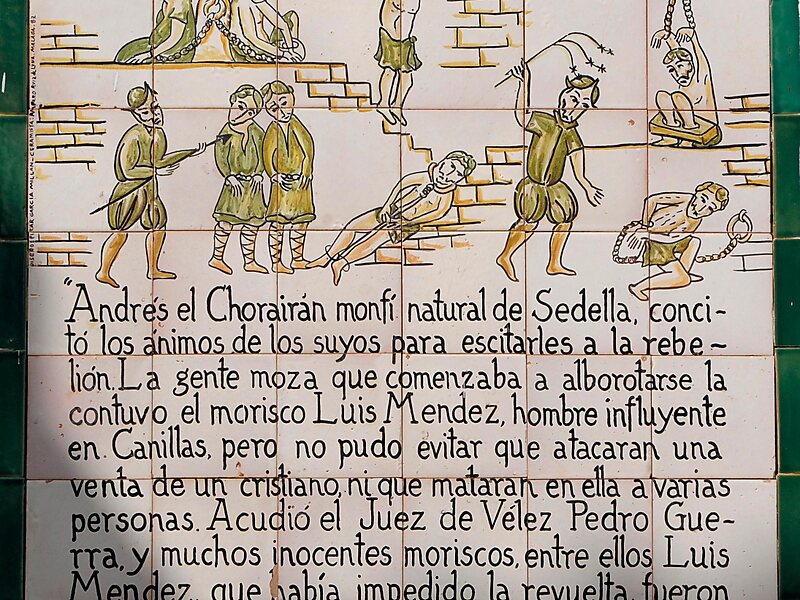 "Andrés el Chorairán monfí natural de Sedella, conci-
tó los ánimos de los suyos para escitarles a la rebe-
lión. La gente moza que comenzaba a alborotarse la
contuvo el morisco Luis Mendez, hombre influyente
en Canillas, pero no pudo evitar que atacaran una
venta de un cristiano, ni que mataran en ella a varias
personas. Acudió el Juez de Vélez Pedro Gue-
rra, y muchos inocentes moriscos, entre ellos Luis
Mendez, que había impedido la revuelta, fueron